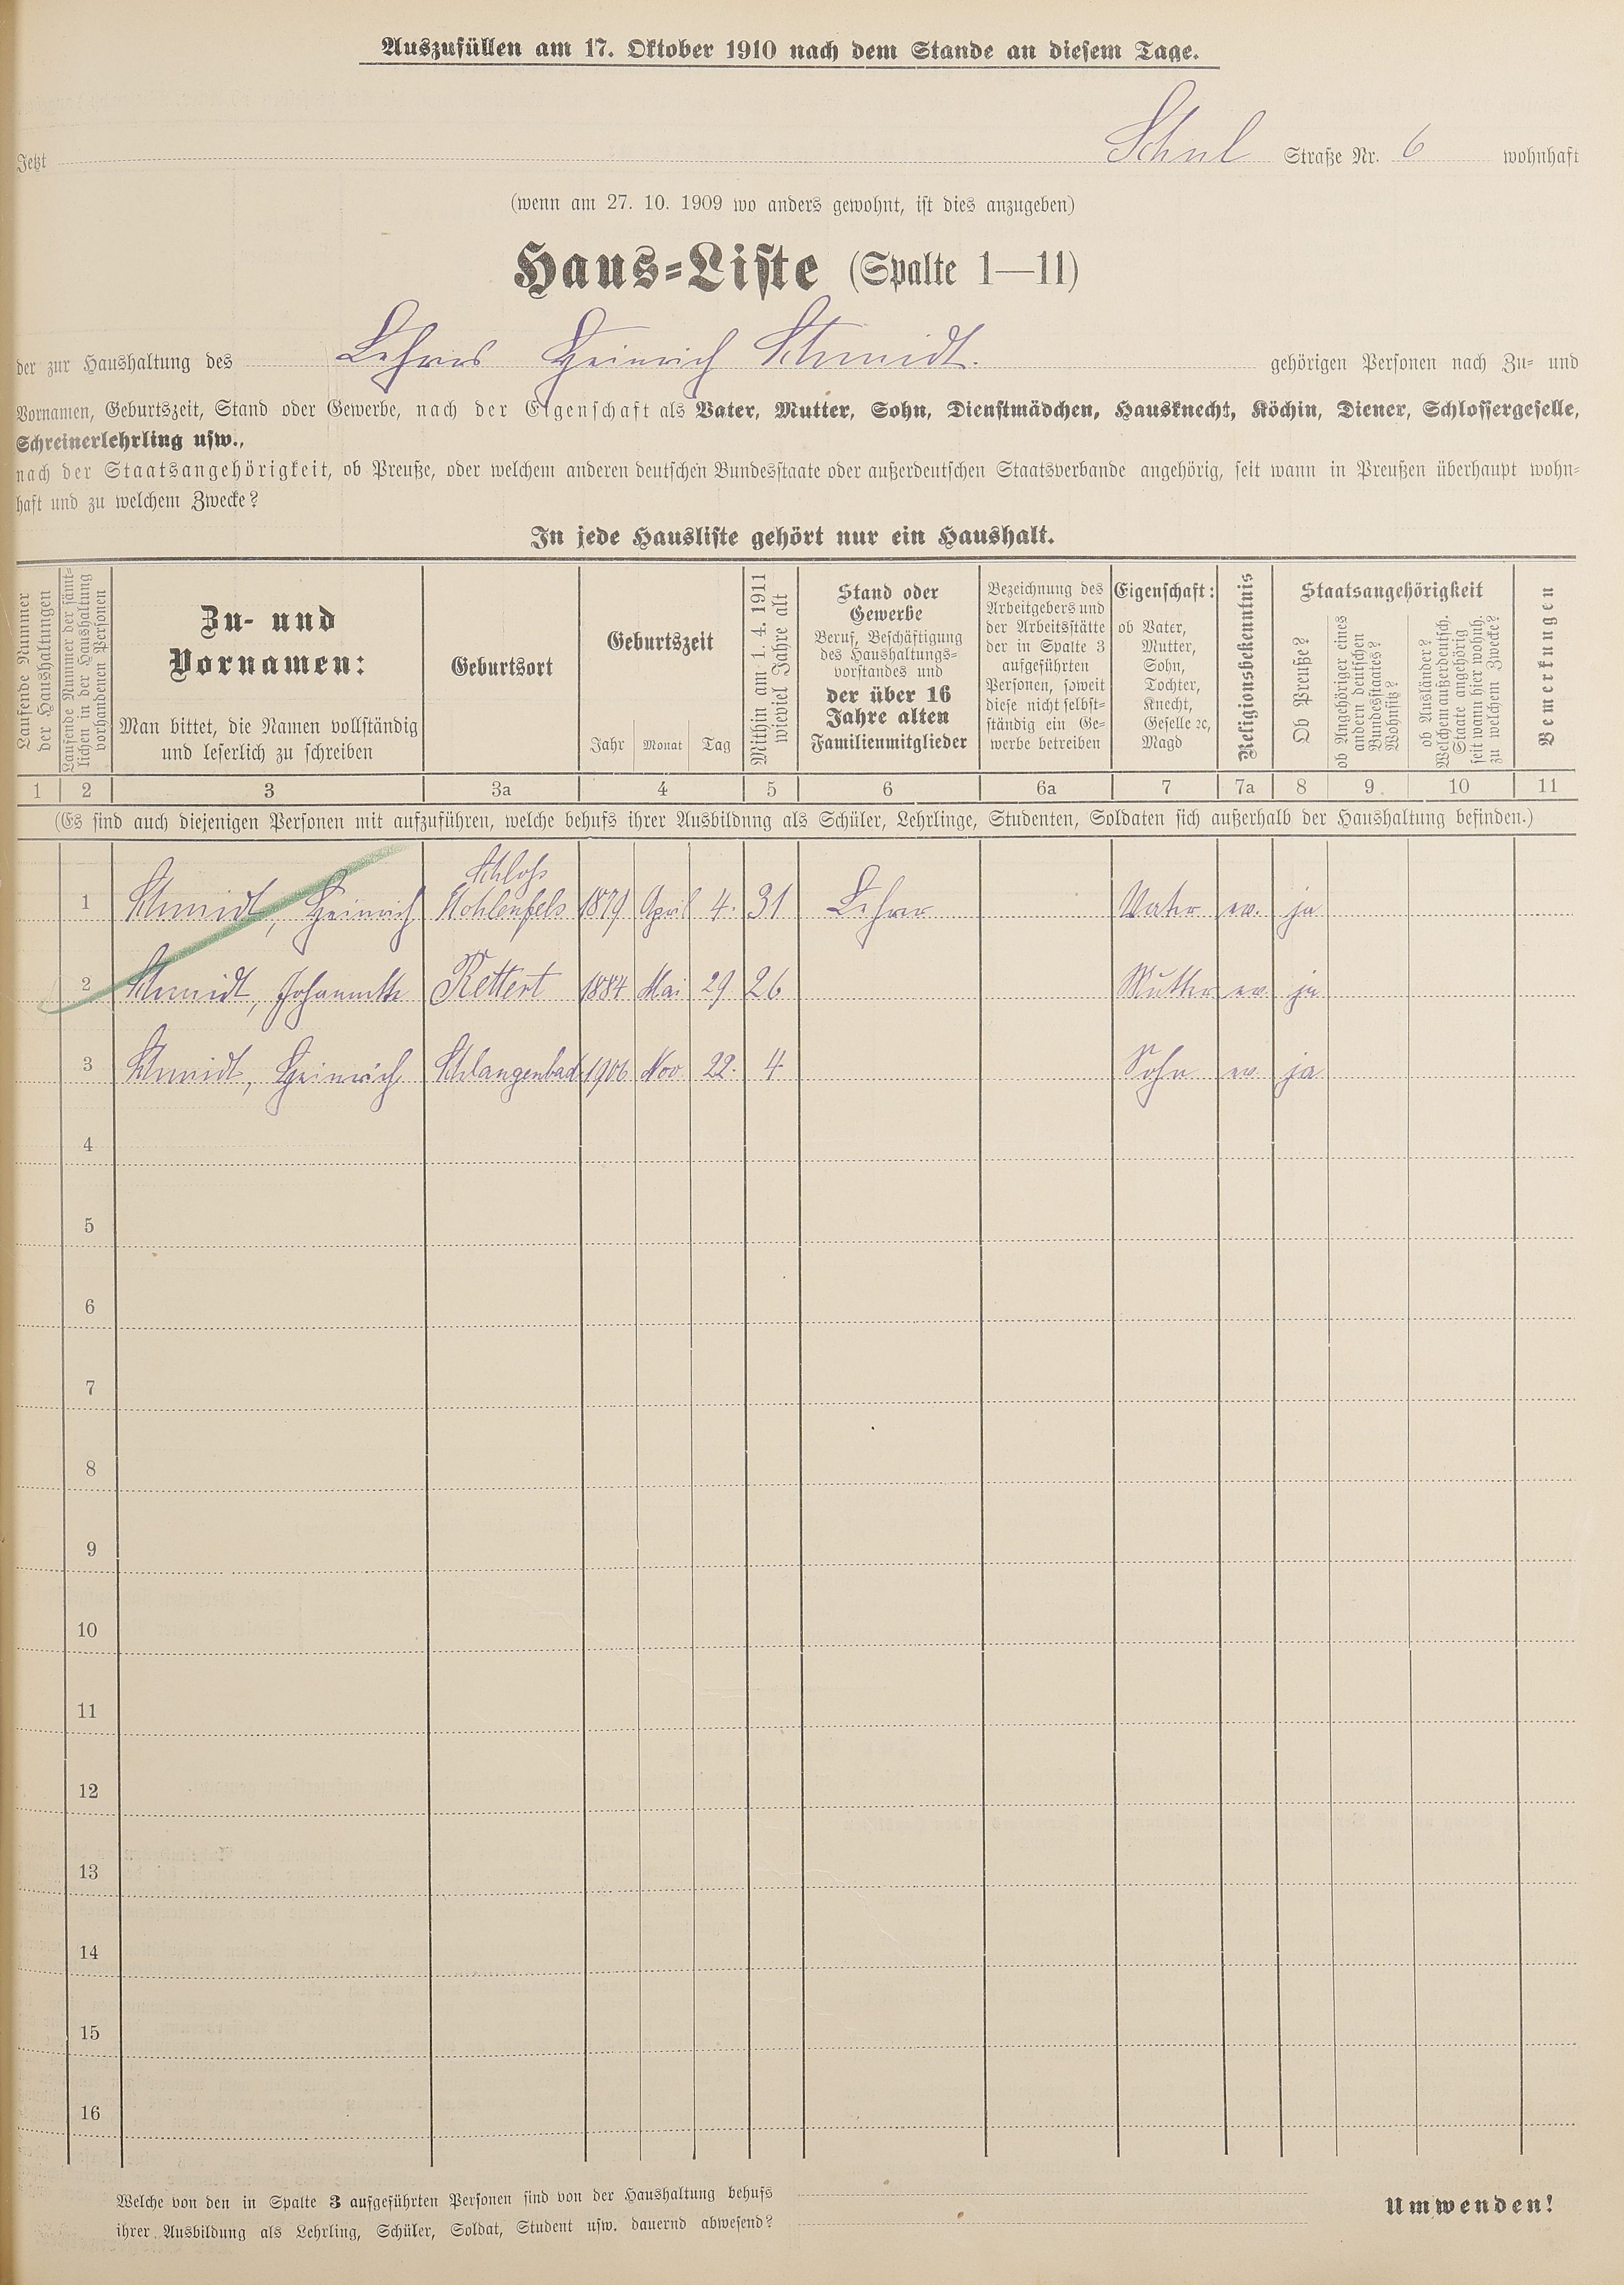 Auszufüllen am 17. Oktober 1910 nach dem Stande an diesem Tage.
Jetzt Schul Straße Nr. 6 wohnhaft
(wenn am 27. 10. 1909 wo anders gewohnt, ist dies anzugeben)
Haus-Liste (Spalte 1—11)
der zur Haushaltung des Lehrers Heinrich Schmidt. gehörigen Personen nach Zu- und
Vornamen, Geburtszeit, Stand oder Gewerbe, nach der Eigenschaft als Vater, Mutter, Sohn, Dienstmädchen, Hausknecht, Köchin, Diener, Schlossergeselle,
Schreinerlehrling usw.,
nach der Staatsangehörigkeit, ob Preuße, oder welchem anderen deutschen Bundesstaate oder außerdeutschen Staatsverbande angehörig, seit wann in Preußen überhaupt wohn-
haft und zu welchem Zwecke?
In jede Hausliste gehört nur ein Haushalt.
Laufende Nummer
der Haushaltungen
Laufende Nummer der sämt-
lichen in der Haushaltung
vorhandenen Personen
Zu- und
Vornamen:
Man bittet, die Namen vollständig
und leserlich zu schreiben
Geburtsort
Geburtszeit
Jahr Monat Tag
Mithin am 1. 4. 1911
wieviel Jahre alt
Stand oder
Gewerbe
Beruf, Beschäftigung
des Haushaltungs-
vorstandes und
der über 16
Jahre alten
Familienmitglieder
Bezeichnung des
Arbeitgebers und
der Arbeitsstätte
der in Spalte 3
aufgeführten
Personen, soweit
diese nicht selbst-
ständig ein Ge-
werbe betreiben
Eigenschaft:
ob Vater,
Mutter,
Sohn,
Tochter,
Knecht,
Geselle ꝛc,
Magd
Religionsbekenntnis
Staatsangehörigkeit
Ob Preuße?
ob Angehöriger eines
andern deutschen
Bundesstaates?
Wohnsitz?
ob Ausländer?
Welchem außerdeutsch.
Staate angehörig
seit wann hier wohnh.
zu welchem Zwecke?
Bemerkungen
1 2 3 3a 4 5 6 6a 7 7a 8 9 10 11
(Es sind auch diejenigen Personen mit aufzuführen, welche behufs ihrer Ausbildung als Schüler, Lehrlinge, Studenten, Soldaten sich außerhalb der Haushaltung befinden.)
Schloss
1 Schmidt, Heinrich Hohlenfels 1879 April 4. 31 Lehrer Vater ev. ja
2 Schmidt, Johannette Rettert 1884 Mai 29 26 Mutter ev. ja
3 Schmidt, Heinrich Schlangenbad 1906 Nov. 22. 4 Sohn ev. ja
4
5
6
7
8
9
10
11
12
13
14
15
16
Welche von den in Spalte 3 aufgeführten Personen sind von der Haushaltung behufs
ihrer Ausbildung als Lehrling, Schüler, Soldat, Student usw. dauernd abwesend?
Umwenden!